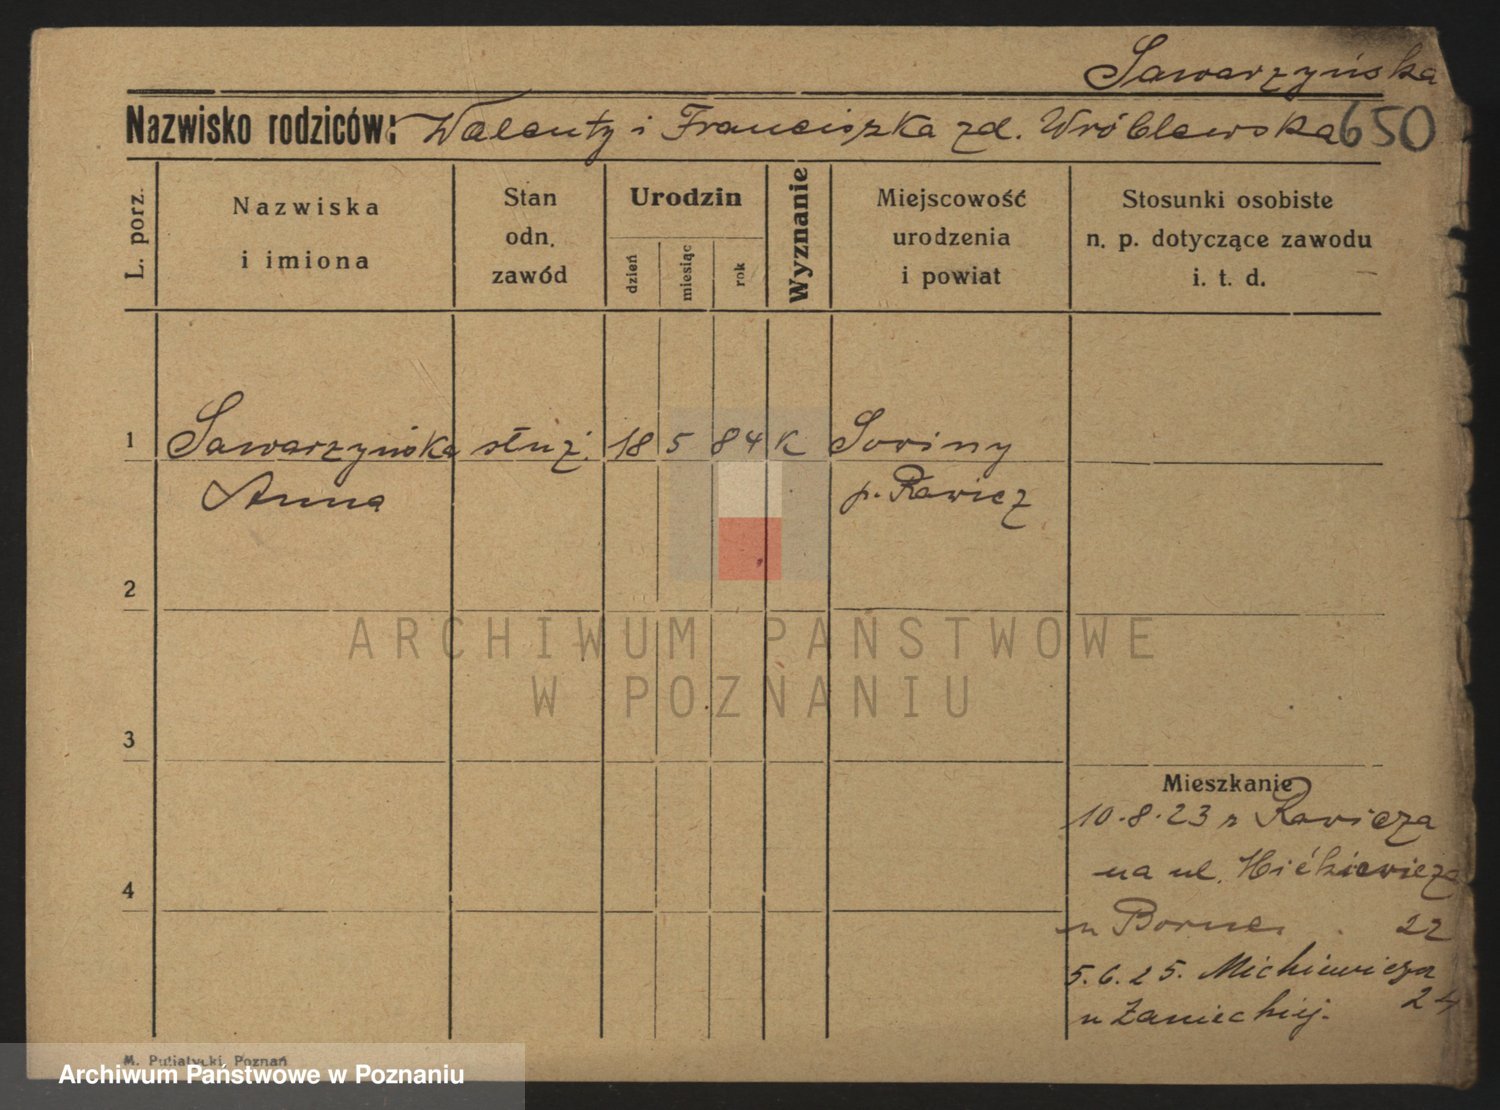 Sawarzyńska
Nazwisko rodziców: Walenty i Franciszka zd. Wróblewska 650
L. porz.
Nazwiska
i imiona
Stan
odn.
zawód
Urodzin
dzień
miesiąc
rok
Wyznanie
Miejscowość
urodzenia
i powiat
Stosunki osobiste
n. p. dotyczące zawodu
i. t. d.
1 Sawarzyńska służ. 18 5 84 K Soviny
Anna p. Rawicz
2
ARCHIWUM PAŃSTWOWE
W POZNANIU
3
Mieszkanie
10.8.23 z Rawicza
na ul.
4
u Borne 22
5.6.25. Mickiewicza
24
u Zanieckiej.
M. Putiatycki, Poznań
Archiwum Państwowe w Poznaniu